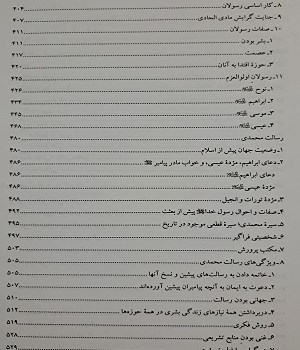 ۸ـ کار اساسی رسولان ۴۰۴
۹ـ جنایت گرایش مادی الحادی ۴۰۷
۱۰ـ صفات رسولان ۴۱۱
۱ـ بشر بودن ۴۱۱
۲ـ عصمت ۴۱۷
۳ـ حوزهٔ اقتدا به آنان ۴۲۰
۱۱ـ رسولان اولوالعزم ۴۲۵
۱ـ نوح ۴۲۶
۲ـ ابراهیم ۴۳۴
۳ـ موسی ۴۴۵
۴ـ عیسی ۴۶۸
رسالت محمدی ۴۸۰
۱ـ وضعیت جهان پیش از اسلام ۴۸۰
۲ـ دعای ابراهیم، مژدهٔ عیسی، و خواب مادر پیامبر ﷺ ۴۸۶
دعای ابراهیم ۴۸۶
مژدهٔ عیسی ۴۸۶
۳ـ مژدهٔ تورات و انجیل ۴۸۸
۴ـ صفات و احوال رسول خدا ﷺ پیش از بعثت ۴۹۲
۵ـ سیرهٔ محمدی؛ سیرهٔ قطعی موجود در تاریخ ۴۹۵
۶ـ شخصیتی فراگیر ۴۹۷
۷ـ مکتب پرورش ۵۰۳
۸ـ ویژگی‌های رسالت محمدی ۵۰۵
۱ـ خاتمه دادن به رسالت‌های پیشین و نسخ آنها ۵۰۵
۲ـ دعوت به ایمان به آنچه پیامبران پیشین آورده‌اند ۵۰۷
۳ـ جهانی بودن رسالت ۵۱۰
۴ـ دربرداشتن همهٔ نیازهای زندگی بشری در همهٔ حوزه‌ها ۵۱۲
۵ـ روش فکری ۵۱۹
۶ـ غنی بودن منابع تشریعی ۵۲۸
۵۲۹